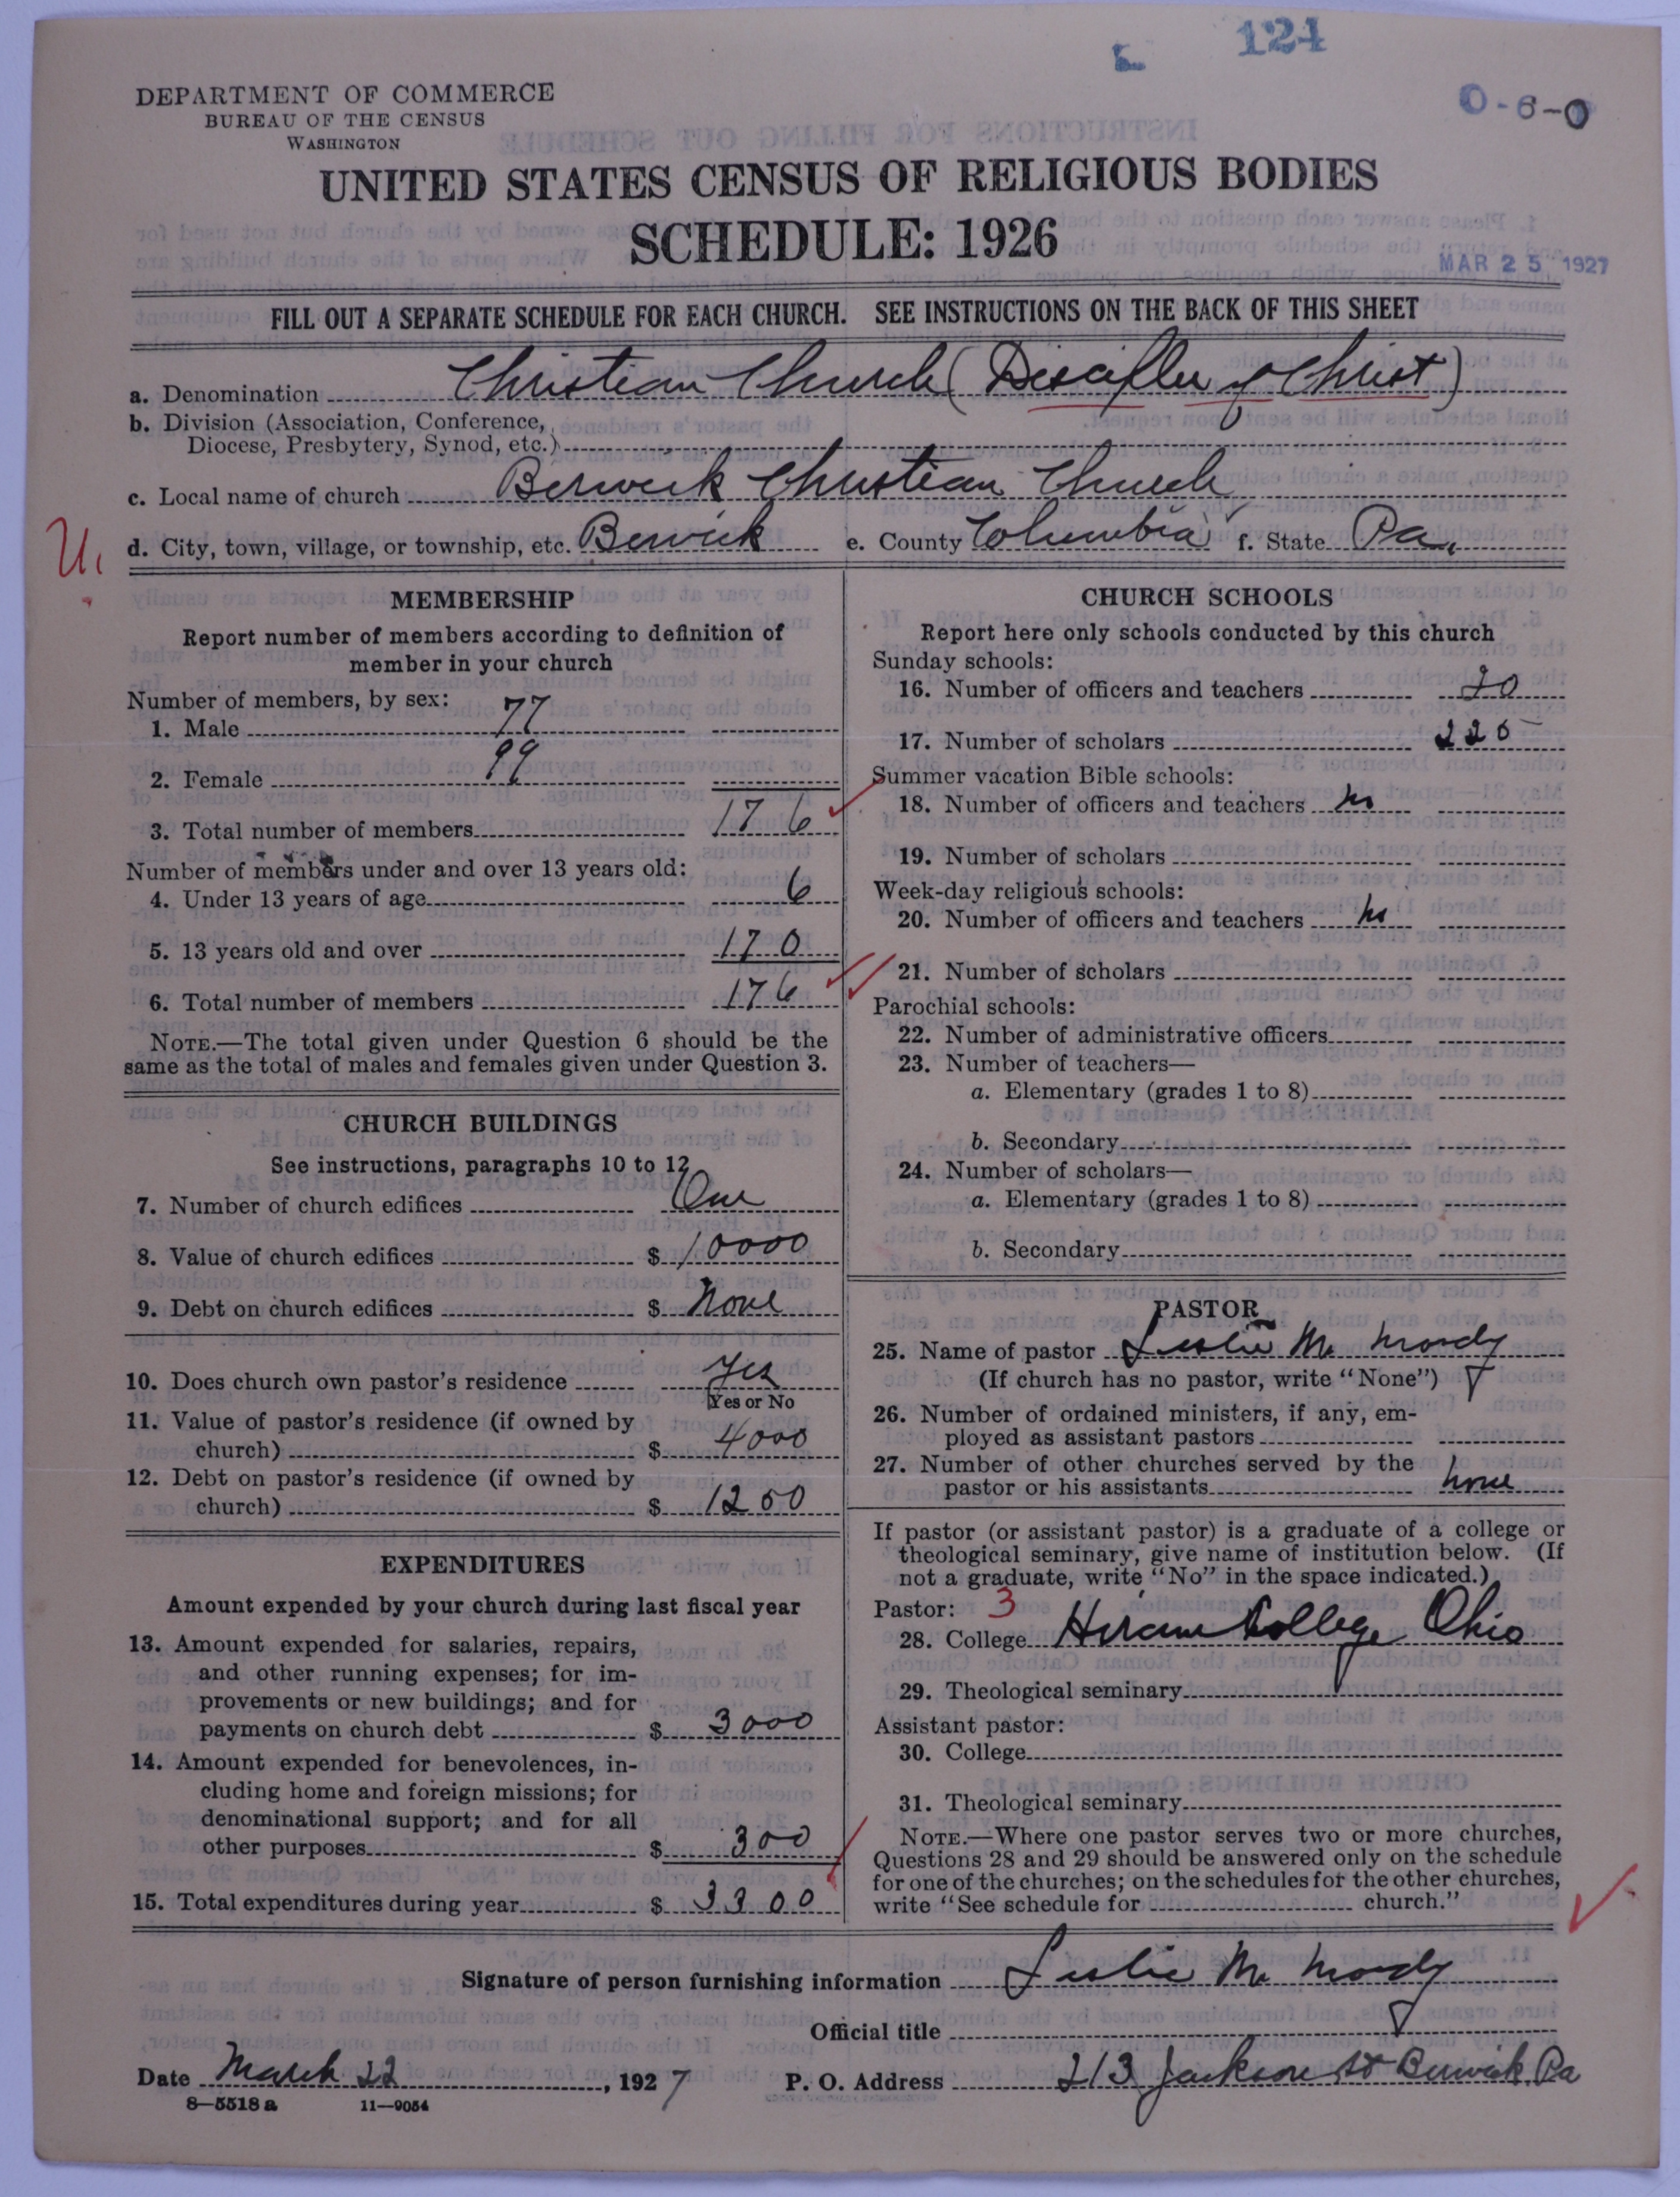 L 124
DEPARTMENT OF COMMERCE
BUREAU OF THE CENSUS
WASHINGTON
0-6-0
UNITED STATES CENSUS OF RELIGIOUS BODIES
SCHEDULE: 1926
MAR 25 1927
FILL OUT A SEPARATE SCHEDULE FOR EACH CHURCH. SEE INSTRUCTIONS ON THE BACK OF THIS SHEET
a. Denomination Christian Church (Disciples of Christ)
b. Division (Association, Conference,
Diocese, Presbytery, Synod, etc.)
c. Local name of church Berwick Christian Church
d. City, town, village, or township, etc. Berwick e. County Columbia f. State Pa.
U.
MEMBERSHIP
Report number of members according to definition of
member in your church
Number of members, by sex:
1. Male 77
2. Female 99
3. Total number of members 176
Number of members under and over 13 years old:
4. Under 13 years of age 6
5. 13 years old and over 170
6. Total number of members 176
NOTE.—The total given under Question 6 should be the
same as the total of males and females given under Question 3.
CHURCH BUILDINGS
See instructions, paragraphs 10 to 12
7. Number of church edifices One
8. Value of church edifices $ 10000
9. Debt on church edifices $ None
10. Does church own pastor's residence Yes
Yes or No
11. Value of pastor's residence (if owned by
church) $ 4000
12. Debt on pastor's residence (if owned by
church) $ 1250
EXPENDITURES
Amount expended by your church during last fiscal year
13. Amount expended for salaries, repairs,
and other running expenses; for im-
provements or new buildings; and for
payments on church debt $ 3000
14. Amount expended for benevolences, in-
cluding home and foreign missions; for
denominational support; and for all
other purposes $ 300
15. Total expenditures during year $ 3300
CHURCH SCHOOLS
Report here only schools conducted by this church
Sunday schools:
16. Number of officers and teachers 20
17. Number of scholars 225
Summer vacation Bible schools:
18. Number of officers and teachers no
19. Number of scholars
Week-day religious schools:
20. Number of officers and teachers no
21. Number of scholars
Parochial schools:
22. Number of administrative officers
23. Number of teachers—
a. Elementary (grades 1 to 8)
b. Secondary
24. Number of scholars—
a. Elementary (grades 1 to 8)
b. Secondary
PASTOR
25. Name of pastor Leslie M. Moody
(If church has no pastor, write "None")
26. Number of ordained ministers, if any, em-
ployed as assistant pastors
27. Number of other churches served by the
pastor or his assistants none
If pastor (or assistant pastor) is a graduate of a college or
theological seminary, give name of institution below. (If
not a graduate, write "No" in the space indicated.)
Pastor: 3
28. College Hiram College Ohio
29. Theological seminary
Assistant pastor:
30. College
31. Theological seminary
NOTE.—Where one pastor serves two or more churches,
Questions 28 and 29 should be answered only on the schedule
for one of the churches; on the schedules for the other churches,
write "See schedule for church."
Signature of person furnishing information Leslie M. Moody
Official title
Date March 22, 1927 P. O. Address 213 Jackson St Berwick, Pa
8—5518 a 11—9054